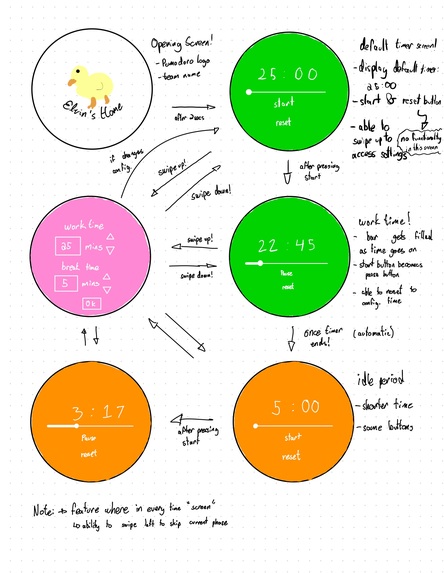 Opening Screen!
- Pomodoro logo
- team name
Elvin's Home
after 2secs
25:00
start
reset
default timer screen
- display default timer:
25:00
- start & reset button
- able to
swipe up to
access settings
no functionality
in this screen
if changes
config.
swipe up!
swipe down!
after pressing
start
work time
25 mins
break time
5 mins
Ok
swipe up!
swipe down!
22:45
Pause
reset
work time!
- bar gets filled
as time goes on
- start button becomes
pause button
- able to reset to
config. time
once timer
ends!
(automatic)
3:17
Pause
reset
after pressing
start
5:00
start
reset
idle period
- shorter time
- same buttons
Note: → feature where in every time "screen"
↳ ability to swipe left to skip current phase